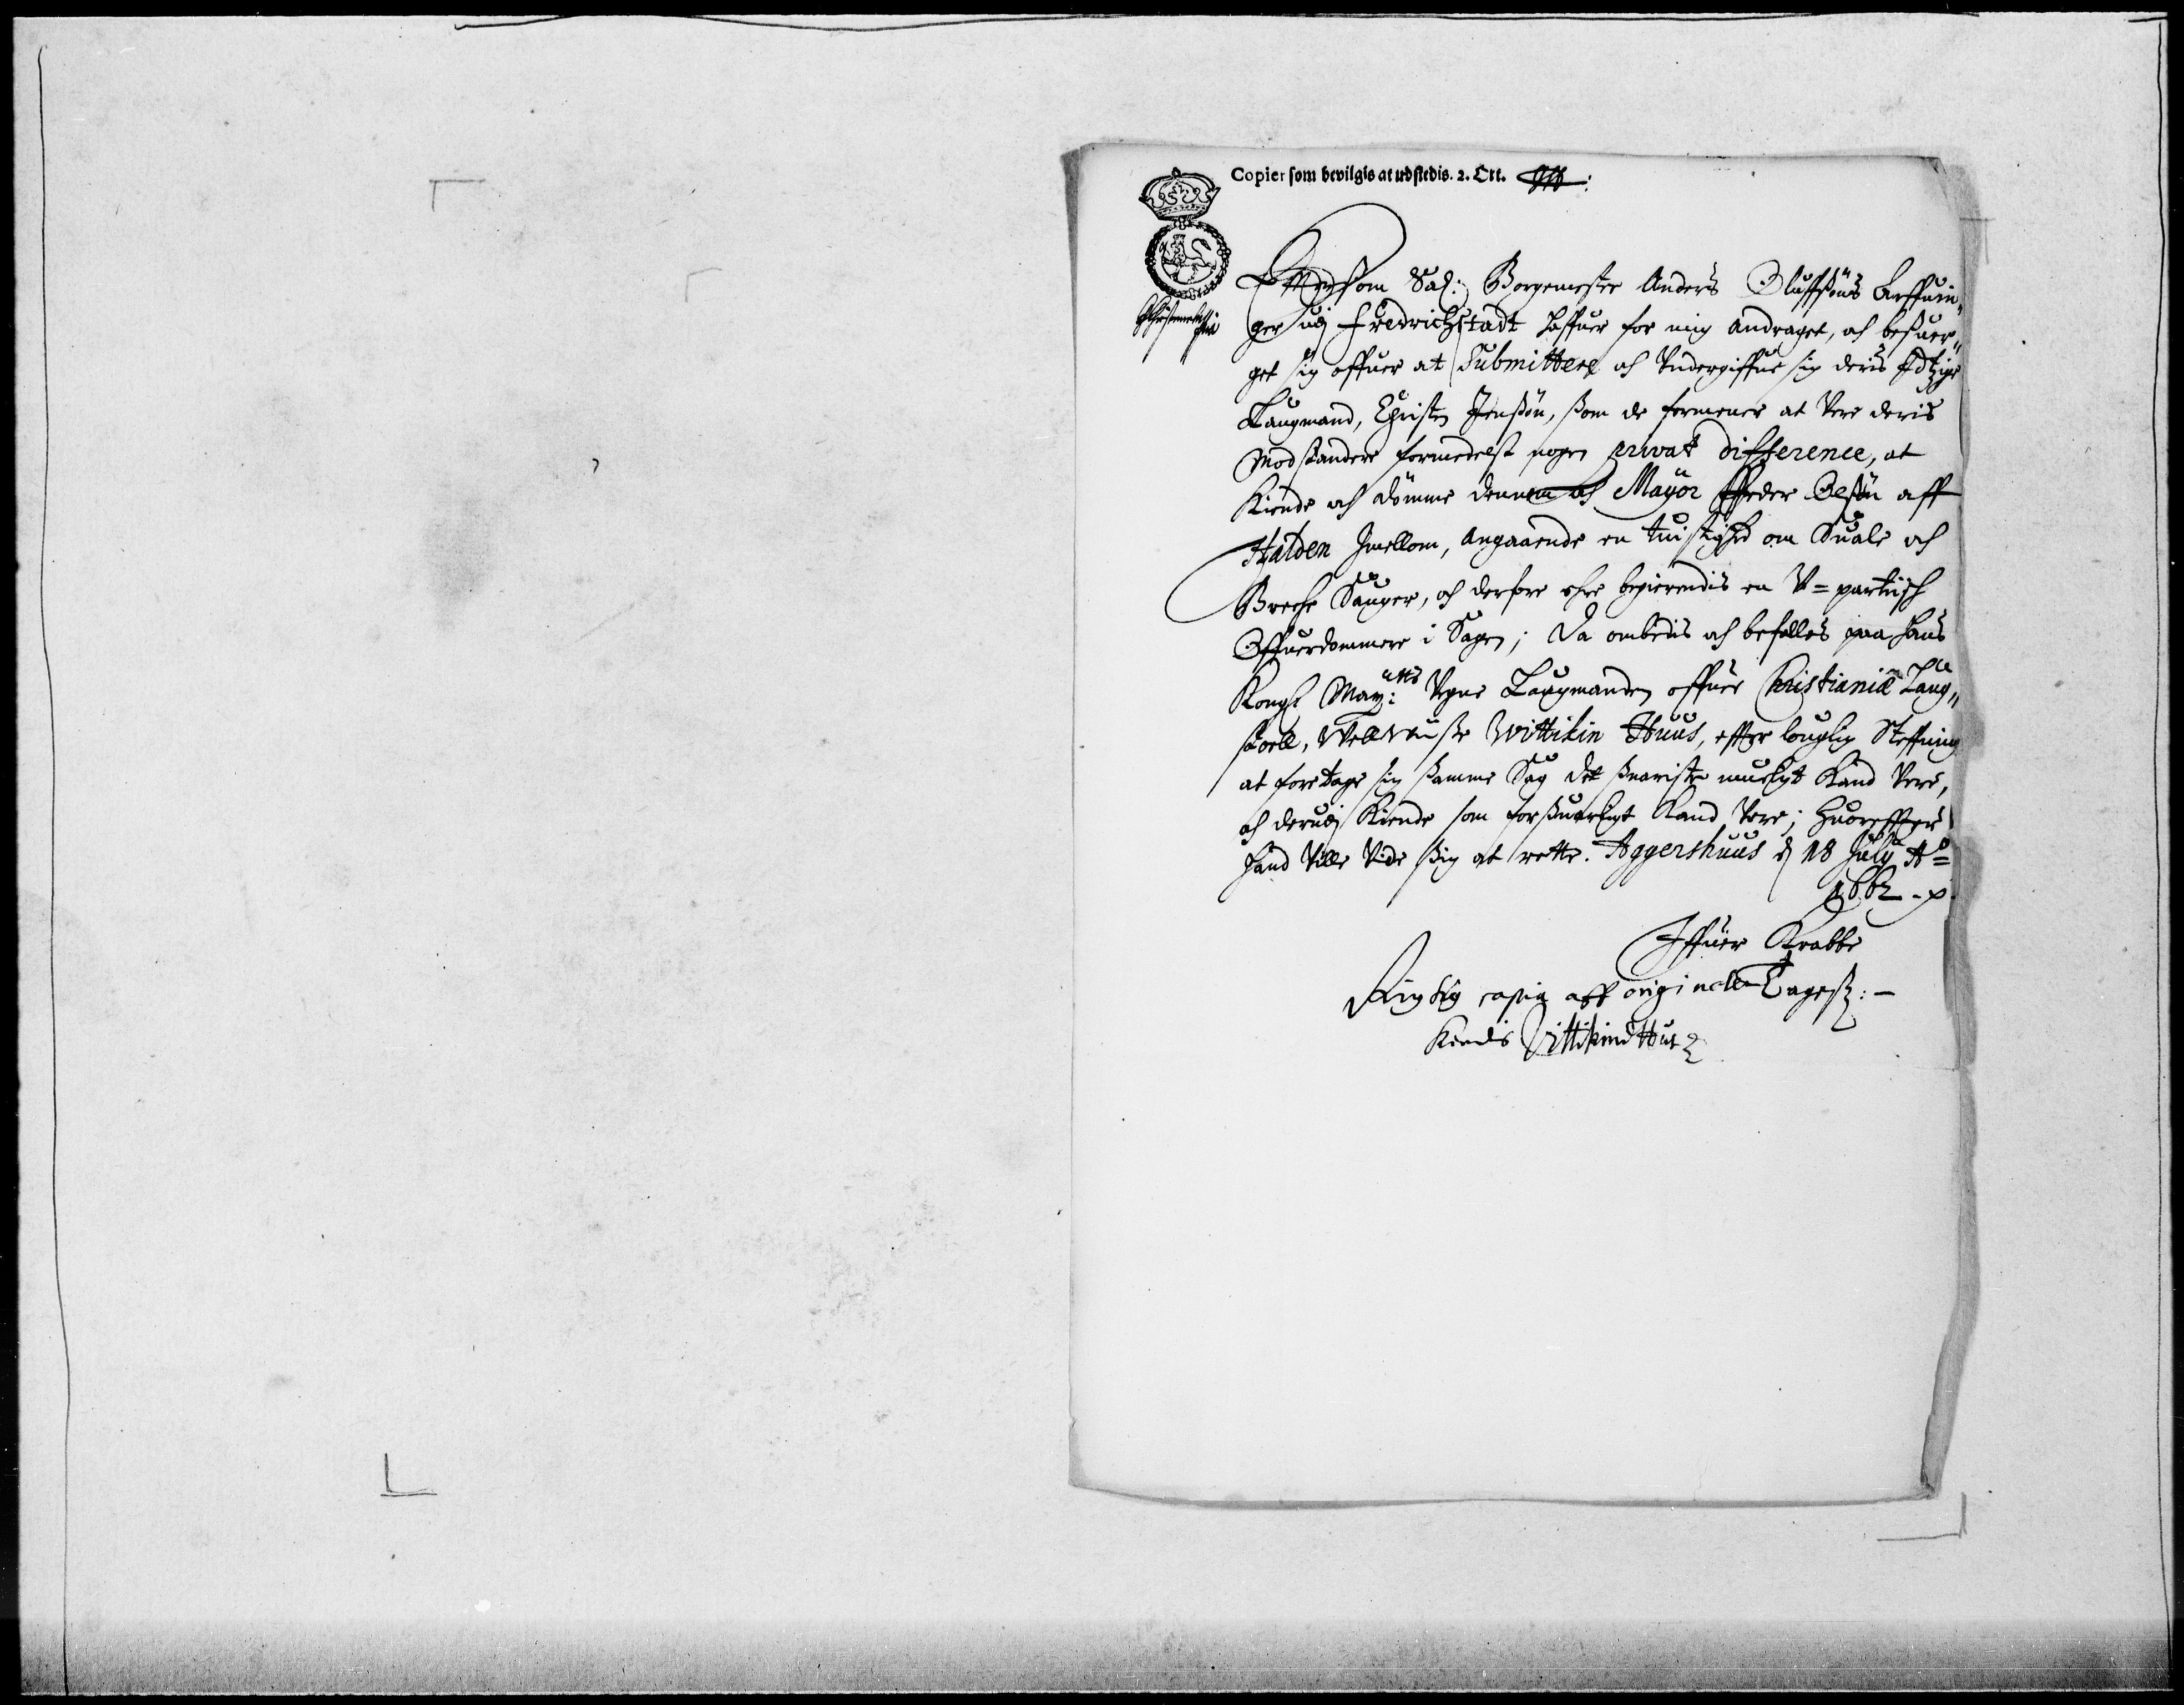 Copier som bevilgis at udstedis. 2. Ort.
Effterßom Sal: Borgemester Anders Oluffßøns Arffuin„
ger udj Fredrichstadt haffuer for mig andraget, och beßuer„
get sig offuer at Submittere och Undergiffue sig deris Itzige
Laugmand, Christen Jenßøn, ßom de formener at Vere deris
Modstandere formedelst nogen privat difference, at
Kiende och dømme dennem och Mayor Peder Olsøn aff
Halden Imellom, angaaende en tuistighed om Suale och
Breche Sauger, och derfore ehre begierendis en V=partiisch
Offuerdommere i Sagen; Da ombedis och befalles paa Hans
Kongl May:tts Vegne Laugmanden offuer Christianiæ Laug„
stoell, Velluiiße Wittikin Huus, effter louglig Steffning
at foretage sig ßamme Sag det ßnariste muligt Kand Vere,
och derudj Kiende som forßuarligt Kand Vere; Huoreffter
Hand Ville Vide ßig at rette. Aggershuus d 18 July Ao=
1662
Iffuer Krabbe
Rigtig copia aff originalen Tagest:
Kiendis Vittikind Hus